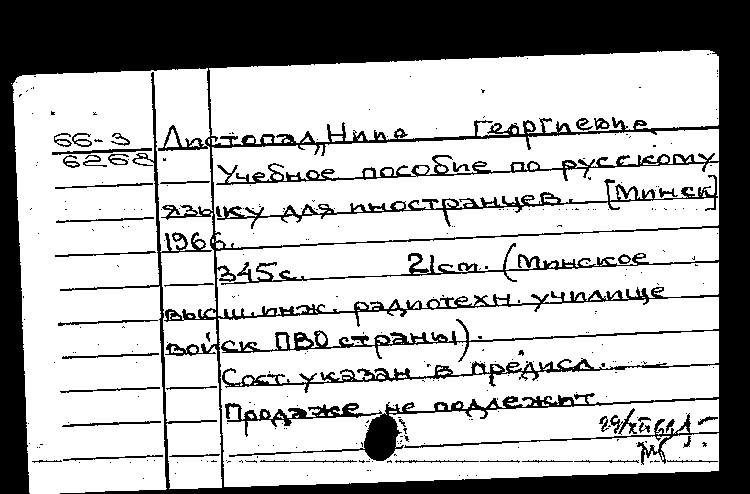 66-3
6268
Листопад, Нина Георгиевна
Учебное пособие по русскому
языку для иностранцев. [Минск]
1966.
345с. 21см. (Минское
высш. инж. радиотехн. училище
войск ПВО страны).
Сост. указан в предисл.
Продаже не подлежит